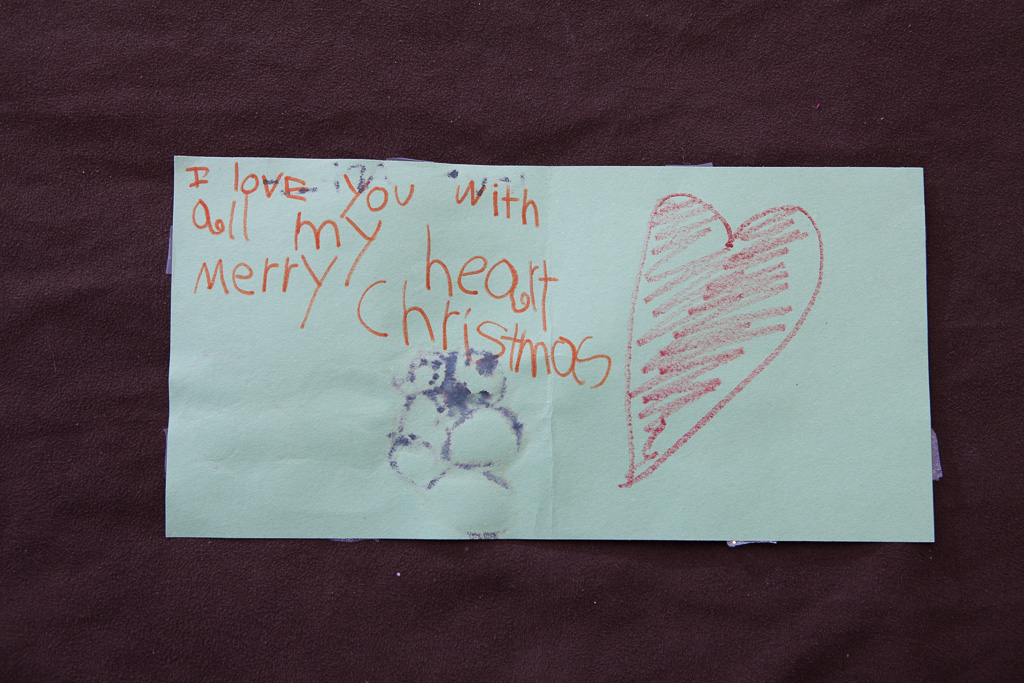 I lovE you with
all my heart
Merry Christmas